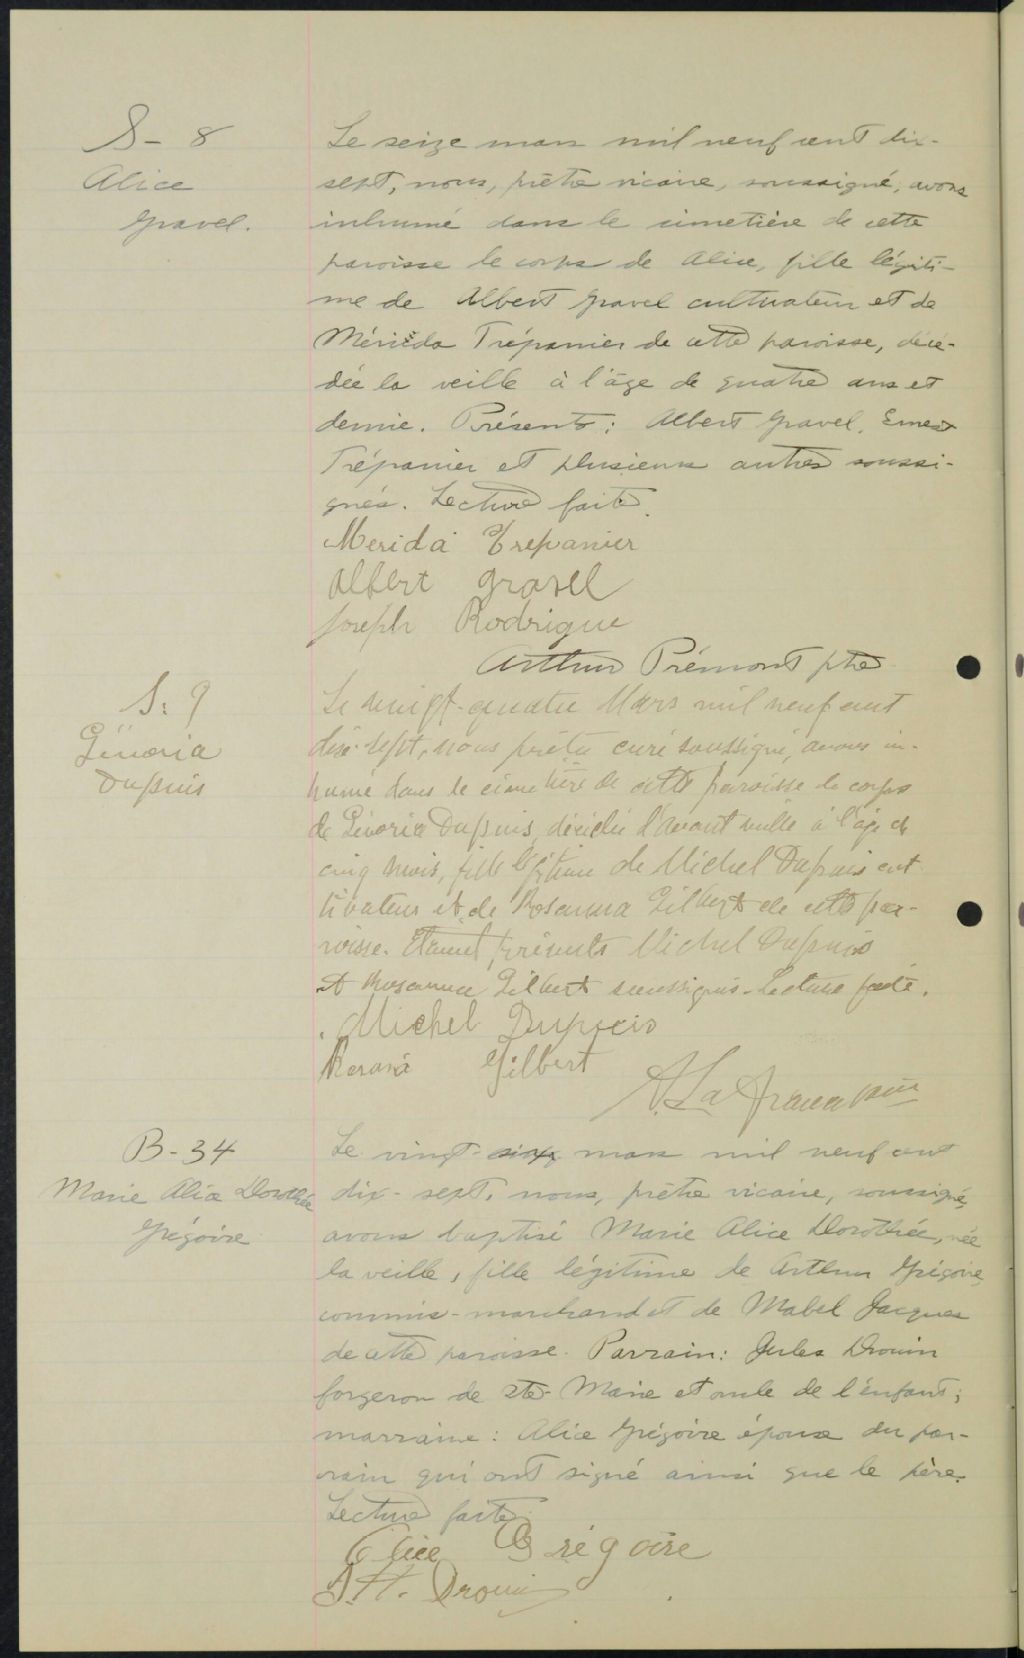 S - 8
Alice
Gravel.
Le seize mars mil neuf cent dix-
sept, nous, prêtre vicaire, soussigné, avons
inhumé dans le cimetière de cette
paroisse le corps de Alice, fille légiti-
me de Albert Gravel cultivateur et de
Mérida Trépanier de cette paroisse, décé-
dée la veille à l'âge de quatre ans et
demie. Présents : Albert Gravel, Ernest
Trépanier et plusieurs autres soussi-
gnés. Lecture faite.
Merida Trepanier
Albert gravel
Joseph Rodrigue
Arthur Prémont ptre
S. 9
Dupuis
Le vingt-quatre Mars mil neuf cent
dix-sept, nous prêtre curé soussigné, avons in-
humé dans le cimetière de cette paroisse le corps
de Dupuis, décédée l'avant veille à l'âge de
cinq mois, fille légitime de Michel Dupuis cul
tivateur et de Rosanna Gilbert de cette pa-
roisse. Etant présents Michel Dupuis
et Rosanna Gilbert soussignés - Lecture faite.
Michel Dupuis
Rosana Gilbert
B - 34
Marie Alice Dorothée
Grégoire
Le vingt-six mars mil neuf cent
dix-sept, nous, prêtre vicaire, soussigné,
avons baptisé Marie Alice Dorothée, née
la veille, fille légitime de Arthur Grégoire,
commis-marchand et de Mabel Jacques
de cette paroisse. Parrain : Jules Drouin
forgeron de Ste-Marie et oncle de l'enfant ;
marraine : Alice Grégoire épouse du par-
rain qui ont signé ainsi que le père.
Lecture faite.
Alice Grégoire
Drouin